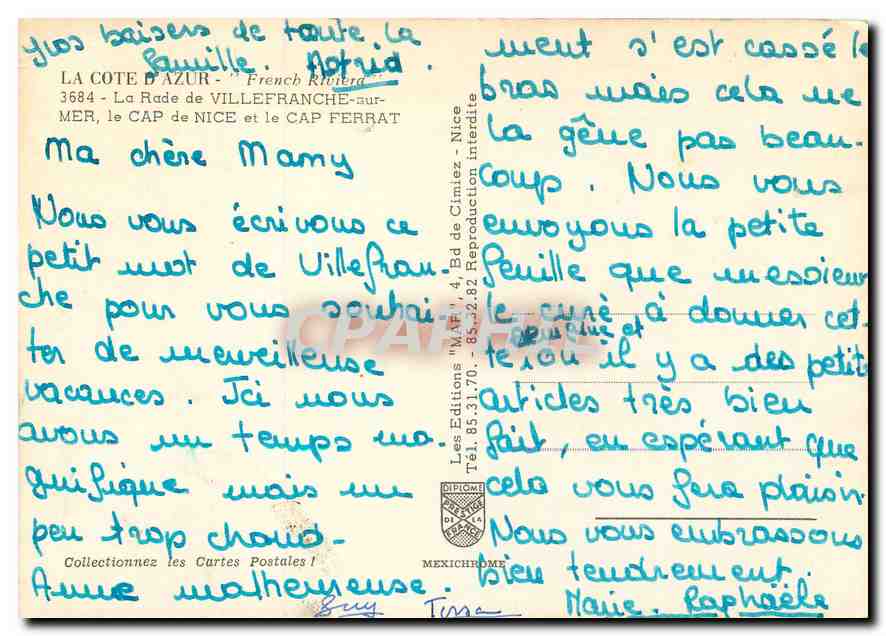 gros baisers de toute la
famille. Astrid.
LA COTE D'AZUR - "French Riviera"
3684 - La Rade de VILLEFRANCHE-sur-
MER, le CAP de NICE et le CAP FERRAT
Ma chère Mamy
Nous vous écrivons ce
petit mot de Villefran-
che pour vous souhai-
ter de merveilleuse
vacances. Ici nous
avons un temps ma-
gnifique mais un
peu trop chaud-
Collectionnez les Cartes Postales !
Anne malheureuse.
Guy
Les Editions "MAR", 4, Bd de Cimiez - Nice
Tél. 85.31.70. - 85.32.82 Reproduction interdite
DIPLOME
PRESTIGE
DE LA
FRANCE
MEXICHROME
CPAPHIL
ment s'est cassé le
bras mais cela ne
la gêne pas beau-
coup. Nous vous
envoyons la petite
feuille que messieur
le curé à donner cet-
semaine et
te où il y a des petits
articles très bien
fait, en espérant que
cela vous fera plaisir.
Nous vous embrassons
bien tendrement.
Marie. Raphaële